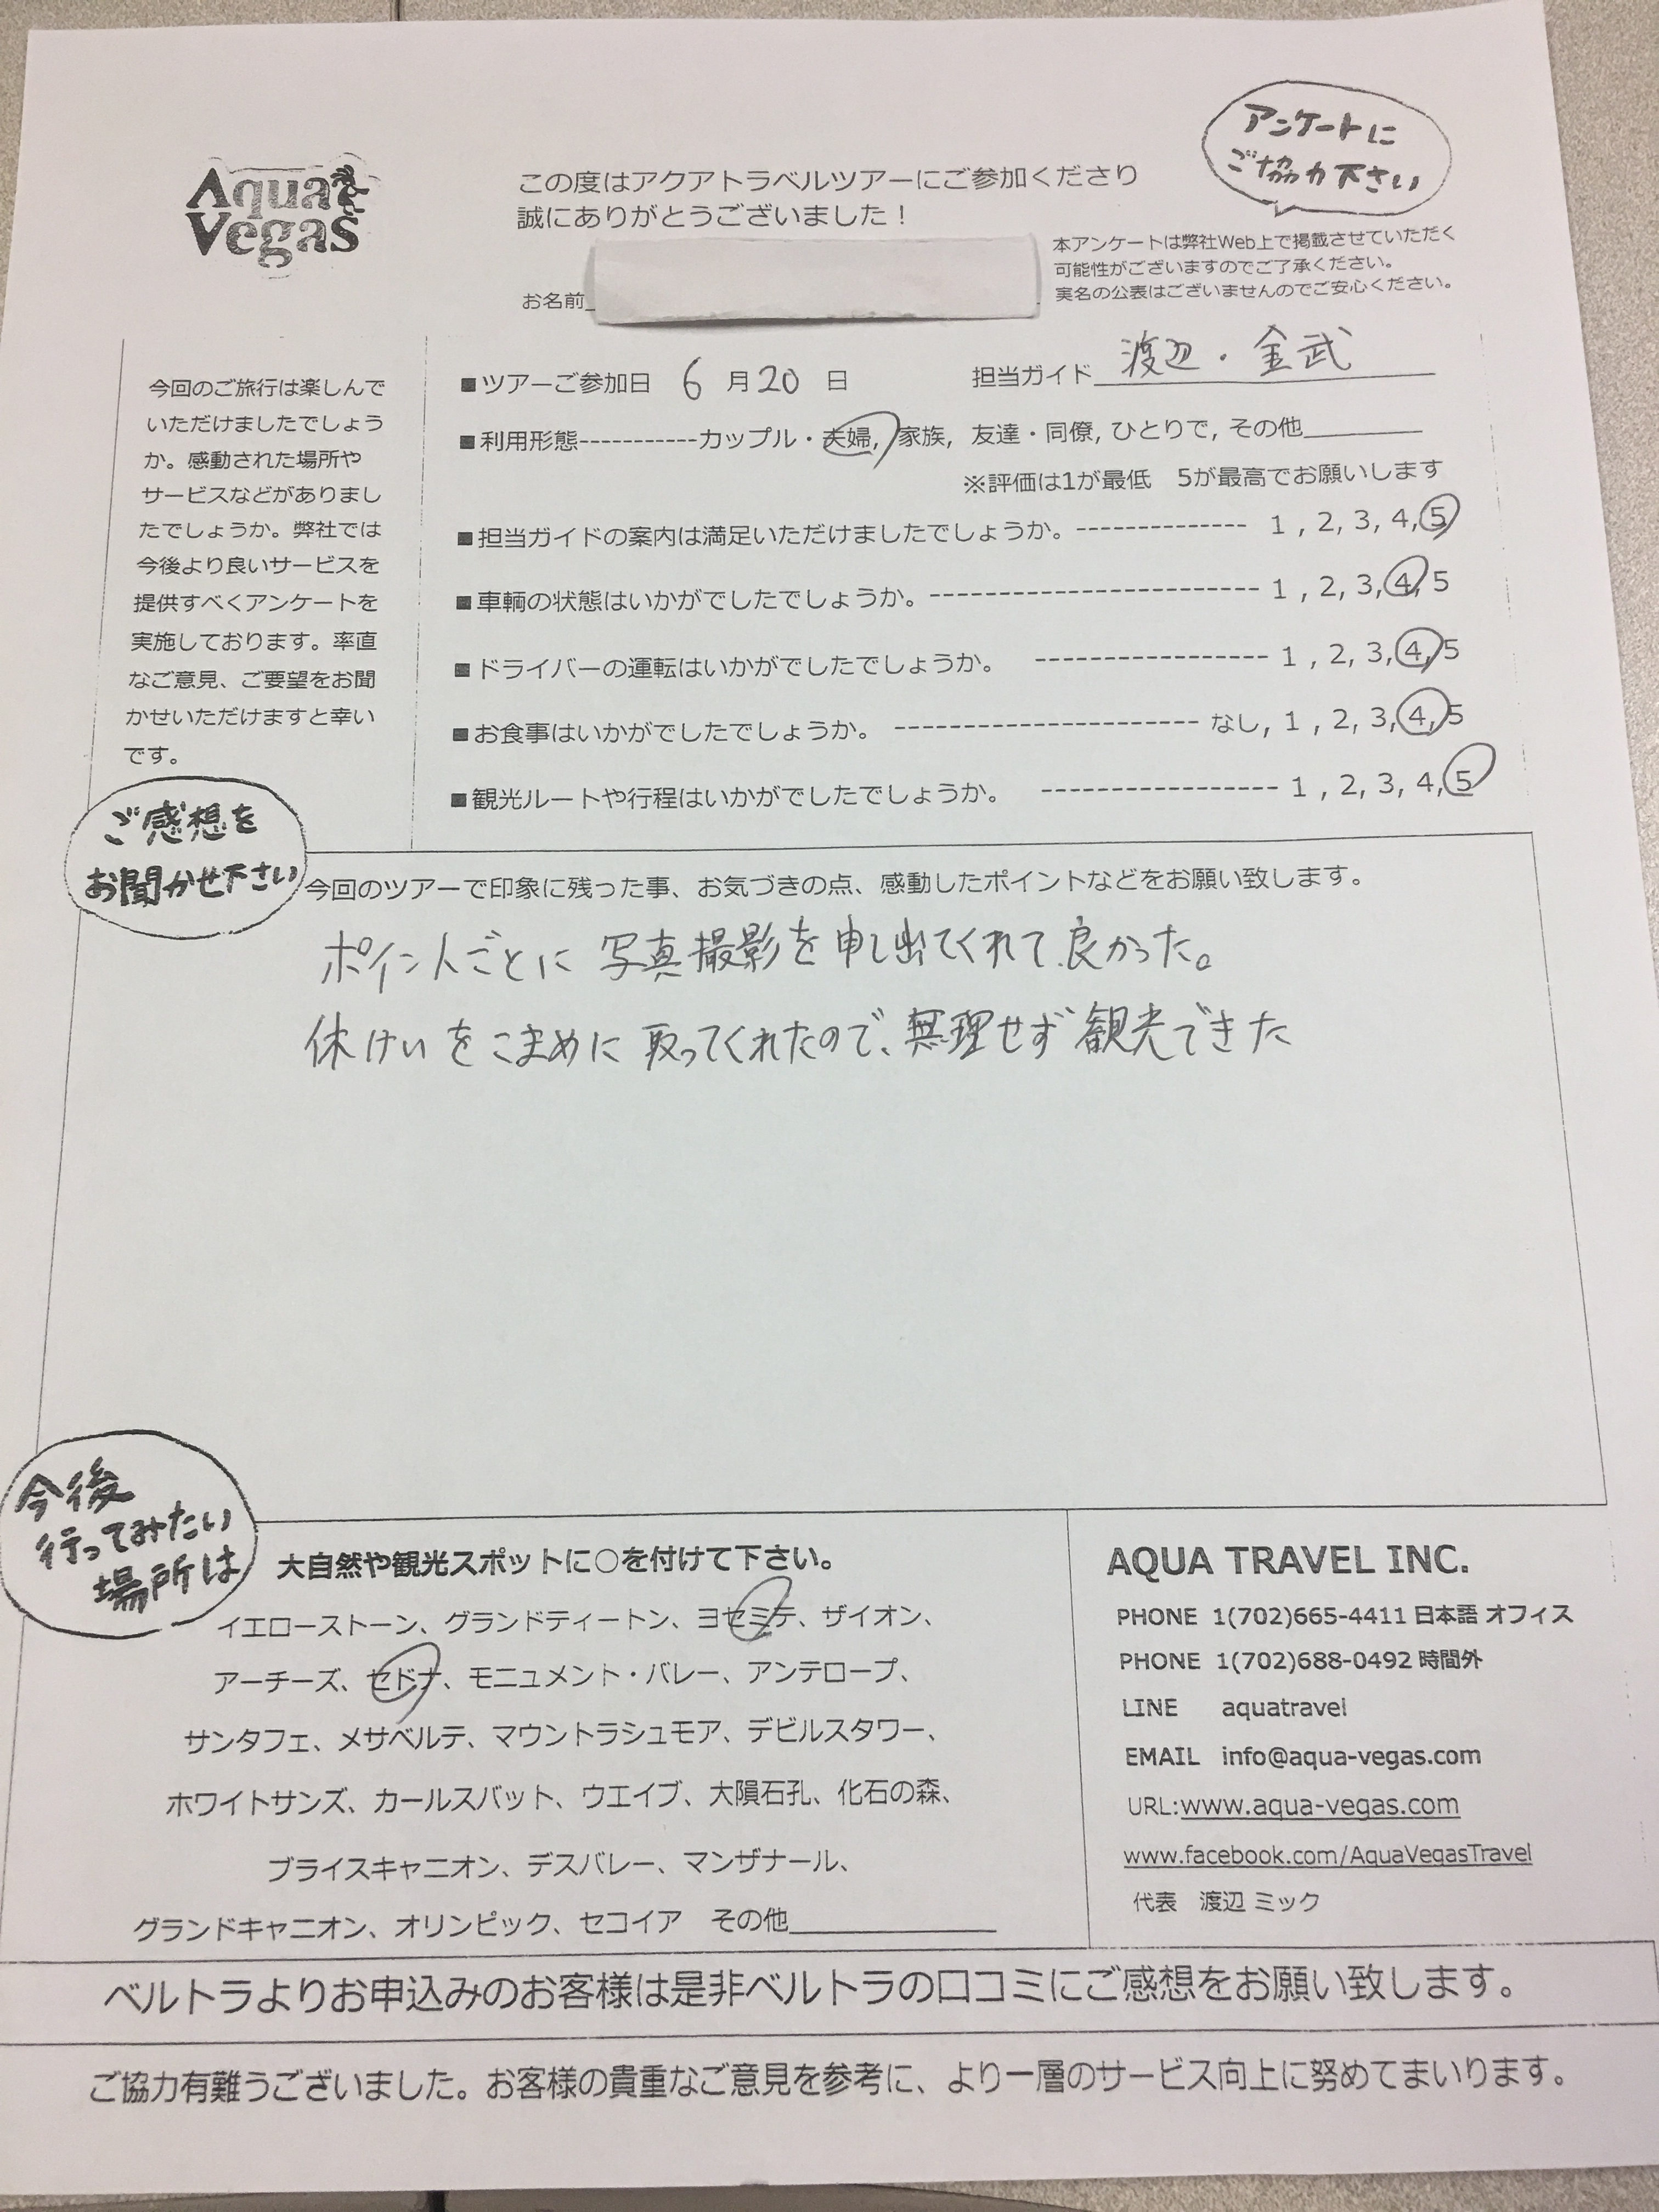 Aqua
Vegas
この度はアクアトラベルツアーにご参加くださり
誠にありがとうございました！
アンケートに
ご協力下さい
本アンケートは弊社Web上で掲載させていただく
可能性がございますのでご了承ください。
実名の公表はございませんのでご安心ください。
お名前
今回のご旅行は楽しんで
いただけましたでしょう
か。感動された場所や
サービスなどがありまし
たでしょうか。弊社では
今後より良いサービスを
提供すべくアンケートを
実施しております。率直
なご意見、ご要望をお聞
かせいただけますと幸い
です。
■ツアーご参加日 6 月 20 日 担当ガイド 渡辺・金武
■利用形態-----------カップル・夫婦, 家族, 友達・同僚, ひとりで, その他
※評価は1が最低 5が最高でお願いします
■担当ガイドの案内は満足いただけましたでしょうか。-------------- 1 , 2, 3, 4, 5
■車輌の状態はいかがでしたでしょうか。--------------------------- 1 , 2, 3, 4, 5
■ドライバーの運転はいかがでしたでしょうか。 ------------------- 1 , 2, 3, 4, 5
■お食事はいかがでしたでしょうか。 ------------------------- なし, 1 , 2, 3, 4, 5
■観光ルートや行程はいかがでしたでしょうか。 ------------------- 1 , 2, 3, 4, 5
ご感想を
お聞かせ下さい
今回のツアーで印象に残った事、お気づきの点、感動したポイントなどをお願い致します。
ポイントごとに 写真撮影を申し出てくれて良かった。
休けいをこまめに取ってくれたので、無理せず観光できた
今後
行ってみたい
場所は
大自然や観光スポットに○を付けて下さい。
イエローストーン、グランドティートン、ヨセミテ、ザイオン、
アーチーズ、セドナ、モニュメント・バレー、アンテロープ、
サンタフェ、メサベルテ、マウントラシュモア、デビルスタワー、
ホワイトサンズ、カールスバット、ウエイブ、大隕石孔、化石の森、
ブライスキャニオン、デスバレー、マンザナール、
グランドキャニオン、オリンピック、セコイア その他
AQUA TRAVEL INC.
PHONE 1(702)665-4411 日本語 オフィス
PHONE 1(702)688-0492 時間外
LINE aquatravel
EMAIL info@aqua-vegas.com
URL:www.aqua-vegas.com
www.facebook.com/AquaVegasTravel
代表 渡辺 ミック
ベルトラよりお申込みのお客様は是非ベルトラの口コミにご感想をお願い致します。
ご協力有難うございました。お客様の貴重なご意見を参考に、より一層のサービス向上に努めてまいります。